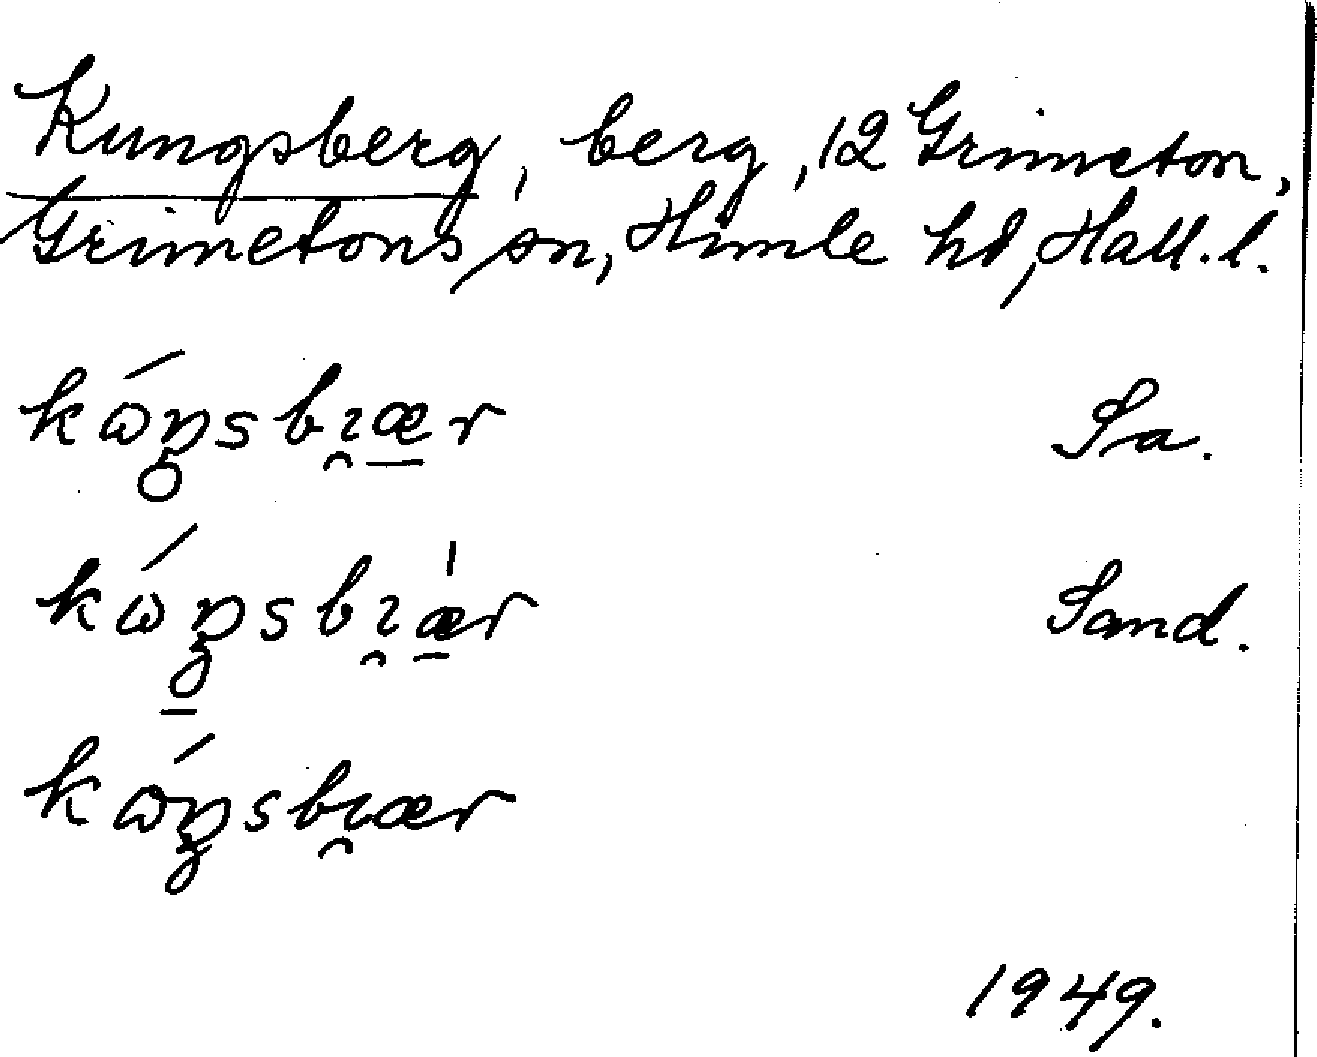 Kungsberg, berg, 12 Grimeton,
Grimetons sn, Himle hd, Hall. l.
kώŋsbı̯æ̱r Sa.
kώŋ̱sbı̯æ̱̍r Sand.
kώŋsbı̯ær
1949.